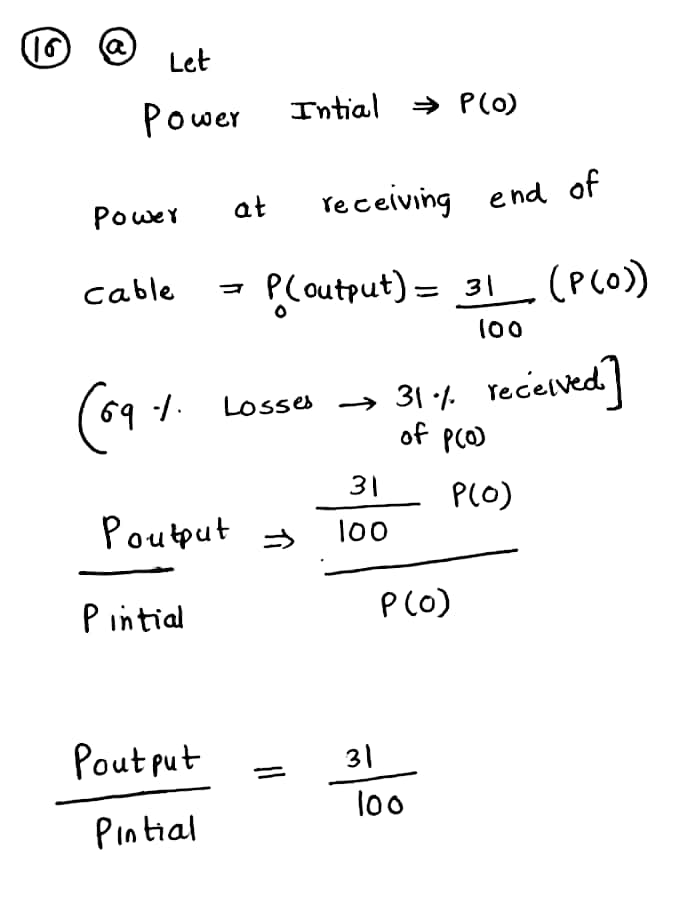 16 a Let
Power Intial ⇒ P(0)
Power at receiving end of
cable ⇒ P(output) = 31/100 (P(0))
(69 %. Losses → 31 %. received]
of P(0)
Poutput / Pintial ⇒ 31/100 P(0) / P(0)
Poutput / Pintial = 31/100